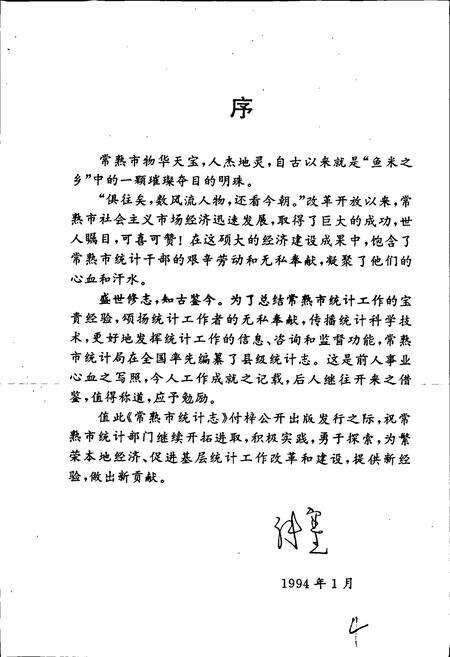 序
常熟市物华天宝，人杰地灵，自古以来就是“鱼米之
乡”中的一颗璀璨夺目的明珠。
“俱往矣，数风流人物，还看今朝。”改革开放以来，常
熟市社会主义市场经济迅速发展，取得了巨大的成功，世
人瞩目，可喜可赞！在这硕大的经济建设成果中，饱含了
常熟市统计干部的艰辛劳动和无私奉献，凝聚了他们的
心血和汗水。
盛世修志，知古鉴今。为了总结常熟市统计工作的宝
贵经验，颂扬统计工作者的无私奉献，传播统计科学技
术，更好地发挥统计工作的信息、咨询和监督功能，常熟
市统计局在全国率先编纂了县级统计志。这是前人事业
心血之写照，今人工作成就之记载，后人继往开来之借
鉴，值得称道，应予勉励。
值此《常熟市统计志》付梓公开出版发行之际，祝常
熟市统计部门继续开拓进取，积极实践，勇于探索，为繁
荣本地经济、促进基层统计工作改革和建设，提供新经
验，做出新贡献。
张塞
1994年1月